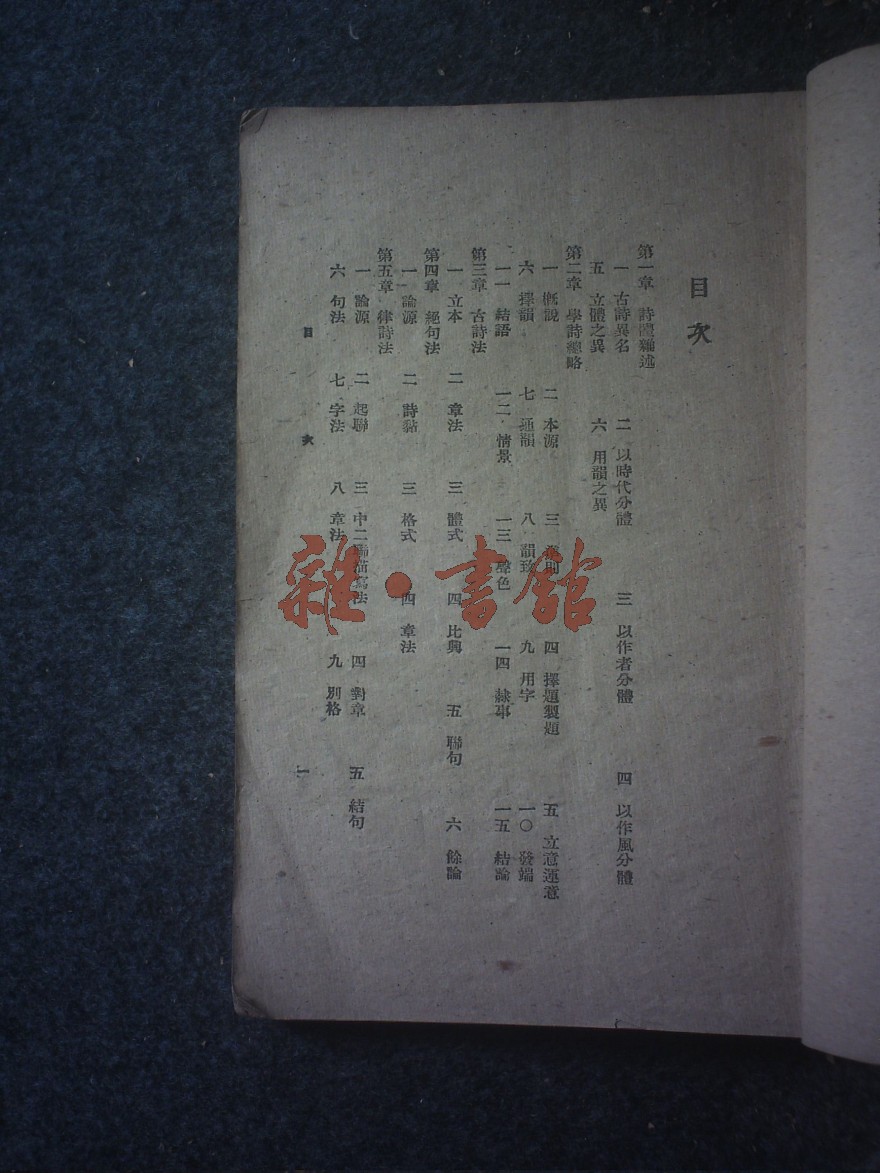 目次
第一章　詩體緟述
一　古詩異名　二　以時代分體　三　以作者分體　四　以作風分體
五　立體之異　六　用韻之異
第二章　學詩總略
一　概說　二　本源　三　四　擇題製題　五　立意運意
六　擇韻　七　通韻　八　韻致　九　用字　一〇　發端
一一　結語　一二　情景　一三　聲色　一四　隸事　一五　結論
第三章　古詩法
一　立本　二　章法　三　體式　四　比興　五　聯句　六　餘論
第四章　絕句法
一　論源　二　詩黏　三　格式　四　章法
第五章　律詩法
一　論源　二　起聯　三　中二聯描寫法　四　對章　五　結句
六　句法　七　字法　八　章法　九　別格
目次　一
雜·書館